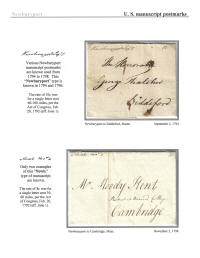 Newburyport
U. S. manuscript postmarks
Various Newburyport
manuscript postmarks
are known used from
1794 to 1798. This
"Newburyport" type is
known in 1794 and 1796.
The rate of 10c was
for a single letter sent
60-100 miles, per the
Act of Congress, Feb.
20, 1792 (eff. June 1).
The Honorable
George Thatcher
Biddeford
Newburyport to Biddeford, Maine.
September 2, 1794
Only two examples
of this "Newb."
type of manuscript
are known.
The rate of 8c was for
a single letter sent 30-
60 miles, per the Act
of Congress, Feb. 20,
1792 (eff. June 1).
Mr. Moody Kent
Cambridge
Newburyport to Cambridge, Mass.
November 2, 1798